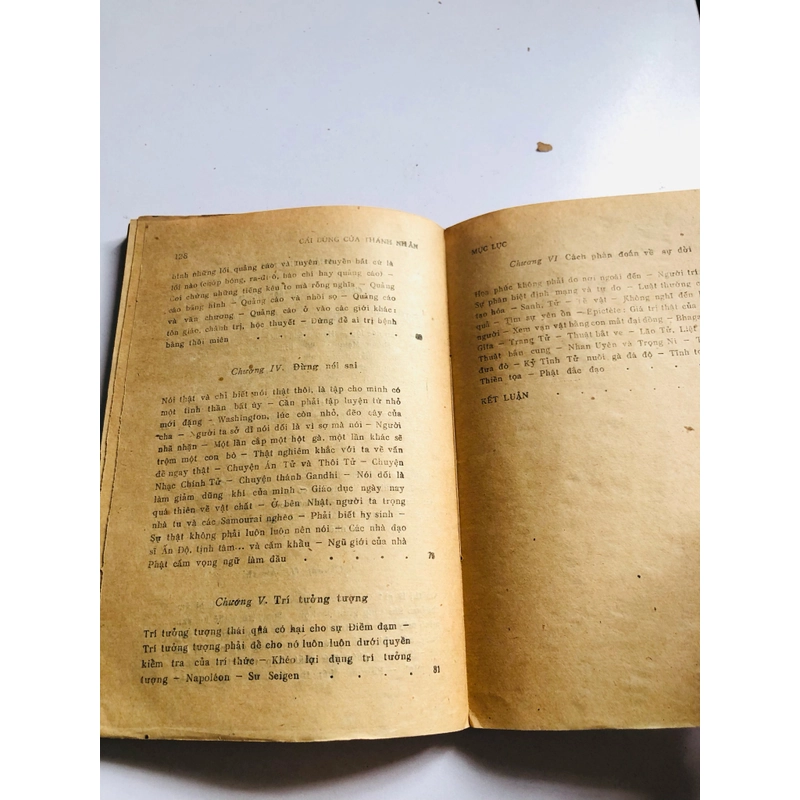 126 CÁI DŨNG CỦA THÁNH NHÂN
hình những lối quảng cáo, và tuyên truyền bất cứ là
lối nào (cúp bóng, ra-đi-ô, báo chí hay quảng cáo)
Coi chừng những tiếng kêu to mà rỗng nghĩa — Quảng
cáo bằng hình — Quảng cáo và nhồi sọ — Quảng cáo
và văn chương — Quảng cáo ở vào các giới khác:
tôn giáo, chánh trị, học thuyết — Đừng để ai trị bệnh
bằng thôi miên . . . . . 69
Chương IV. Đừng nói sai
Nói thật và chỉ biết nói thật thôi, là tập cho mình có
một tinh thần bất úy — Cần phải tập luyện từ nhỏ
mới đặng — Washington, lúc còn nhỏ, đẽo cây của
cha — Người ta sở dĩ nói dối là vì sợ mà nói — Người
nhã nhặn — Một lần cắp một hột gà, một lần khác sẽ
trộm một con bò — Thật nghiêm khắc với ta về vấn
đề ngay thật — Chuyện Án Tử và Thôi Tử — Chuyện
Nhạc Chính Tử — Chuyện thánh Gandhi — Nói dối là
làm giảm dũng khí của mình — Giáo dục ngày nay
quá thiên về vật chất — Ở bên Nhật, người ta trọng
nhà tu và các Samourai nghèo — Phải biết hy sinh —
Sự thật không phải luôn luôn nên nói — Các nhà đạo
sĩ Ấn Độ, tịnh tâm... và cấm khẩu — Ngũ giới của nhà
Phật cấm vọng ngữ làm đầu . . . . . 76
Chương V. Trí tưởng tượng
Trí tưởng tượng thái quá có hại cho sự Điềm đạm —
Trí tưởng tượng phải để cho nó luôn luôn dưới quyền
kiểm tra của trí thức — Khéo lợi dụng trí tưởng
tượng — Napoléon — Sư Seigen . . . . 81
MỤC LỤC
Chương VI Cách phán đoán về sự đời
Họa phúc không phải do nơi ngoài đến — Người trí
Sự phân biệt định mạng và tự do — Luật thường c
tạo hóa — Sanh, Tử — Tề vật — Không nghĩ đến
quả — Tìm sự yên ổn — Epictète: Giá trị thái của
người — Xem vạn vật bằng con mắt đại đồng — Bhaga
Gita — Trang Tử — Thuật bắt ve — Lão Tử, Liệt
Thuật bắn cung — Nhan Uyên và Trọng Ni — T
đưa đò — Kỷ Tỉnh Tử nuôi gà đá độ — Tĩnh to
Thiền tọa — Phật đắc đạo . . . .
KẾT LUẬN . . . .